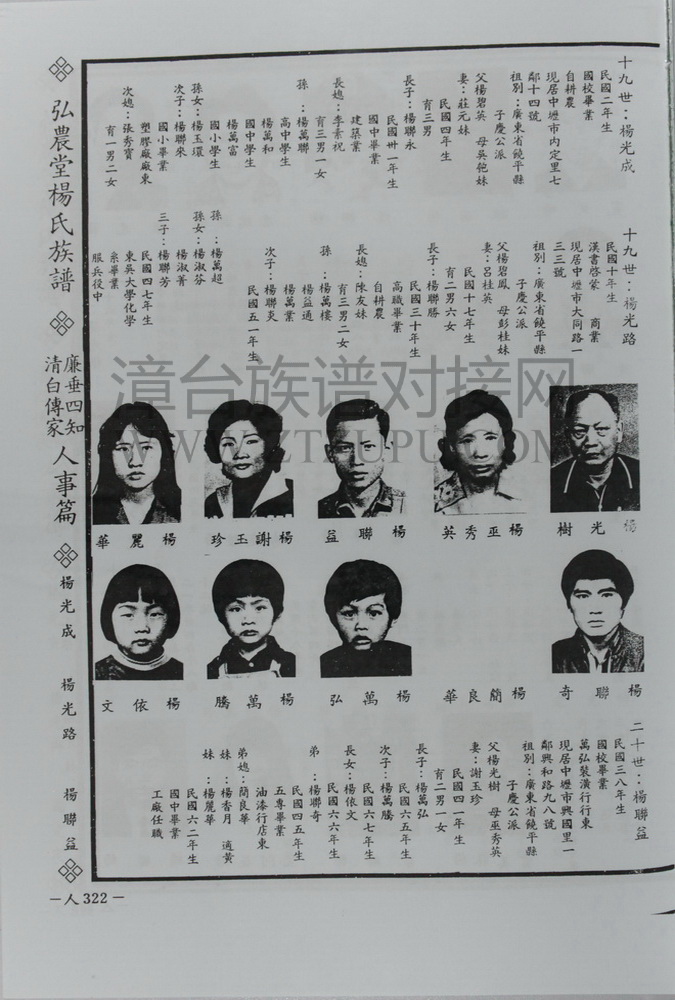 十九世：楊光成
民國二年生
國校畢業
自耕農
現居中壢市內定里七
鄰十四號
祖別：廣東省饒平縣
子慶公派
父楊碧英　母吳㐌妹
妻：莊元妹
民國四年生
育三男
長子：楊聯永
民國卅一年生
國中畢業
建築業
長媳：李素祝
育三男一女
孫：楊萬聯
高中學生
楊萬和
國中學生
楊萬富
國小學生
孫女：楊玉環
次子：楊聯來
國小畢業
塑膠廠廠東
次媳：張秀寶
育一男二女
十九世：楊光路
民國十年生
漢書啓蒙　商業
現居中壢市大同路一
三三號
祖別：廣東省饒平縣
子慶公派
父楊碧鳳　母彭桂妹
妻：呂桂英
民國十七年生
育二男六女
長子：楊聯勝
民國三十年生
高職畢業
自耕農
長媳：陳友妹
育三男二女
孫：楊萬樓
楊益通
楊萬業
次子：楊聯炎
民國五一年生
孫：楊萬超
孫女：楊淑芬
楊淑菁
三子：楊聯芳
民國四七年生
東吳大學化學
系畢業
服兵役中
楊光樹
楊巫秀英
楊聯益
楊謝玉珍
楊麗華
楊聯奇
楊簡良華
楊萬弘
楊萬騰
楊依文
二十世：楊聯益
民國三八年生
國校畢業
萬弘裝潢行行東
現居中壢市興國里一
鄰興和路九八號
祖別：廣東省饒平縣
子慶公派
父楊光樹　母巫秀英
妻：謝玉珍
民國四一年生
育二男一女
長子：楊萬弘
民國六五年生
次子：楊萬騰
民國六七年生
長女：楊依文
民國六六年生
弟：楊聯奇
民國四五年生
五專畢業
油漆行店東
弟媳：簡良華
妹：楊香月　適黃
妹：楊麗華
民國六二年生
國中畢業
工廠任職
弘農堂楊氏族譜
廉垂四知
清白傳家
人事篇
楊光成
楊光路
楊聯益
－人322－
漳台族谱对接网
WWW.ZTZUPU.COM